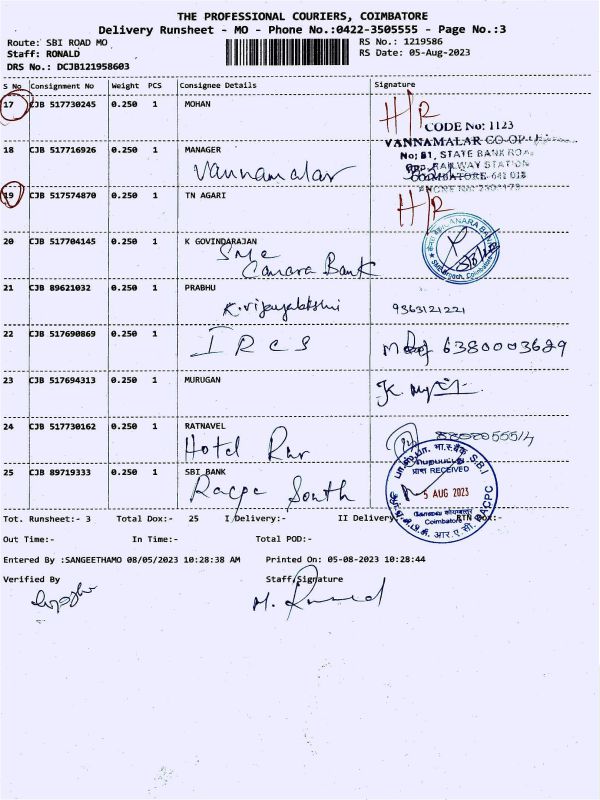 THE PROFESSIONAL COURIERS, COIMBATORE
Delivery Runsheet - MO - Phone No.:0422-3505555 - Page No.:3
Route: SBI ROAD MO RS No.: 1219586
Staff: RONALD RS Date: 05-Aug-2023
DRS No.: DCJB121958603
S No Consignment No Weight PCS Consignee Details Signature
17 CJB 517730245 0.250 1 MOHAN H/R
CODE No: 1123
VANNAMALAR CO-OP
18 CJB 517716926 0.250 1 MANAGER No: 81, STATE BANK ROAD
Vannamalar Opp. RAILWAY STATION
COIMBATORE-641 018
19 CJB 517574870 0.250 1 TN AGARI H/R
20 CJB 517704145 0.250 1 K GOVINDARAJAN
SME
Canara Bank
CANARA BANK
21 CJB 89621032 0.250 1 PRABHU
K. Vijayalakshmi 9363121221
22 CJB 517690869 0.250 1 IRCS 6380003629
23 CJB 517694313 0.250 1 MURUGAN
24 CJB 517730162 0.250 1 RATNAVEL
Hotel Rnr
25 CJB 89719333 0.250 1 SBI BANK
Racpc South
भा.स्टे.बैंक S.B.I
प्राप्त RECEIVED
5 AUG 2023
Coimbatore
RACPC
आर.ए.सी.
Tot. Runsheet:- 3 Total Dox:- 25 I Delivery:- II Delivery:- RTN Dox:-
Out Time:- In Time:- Total POD:-
Entered By :SANGEETHAMO 08/05/2023 10:28:38 AM Printed On: 05-08-2023 10:28:44
Verified By Staff Signature